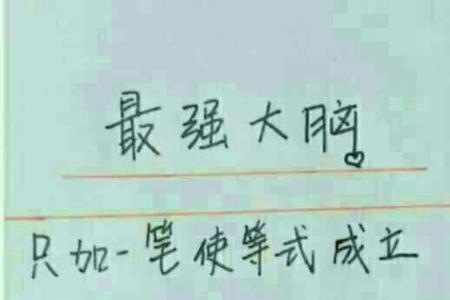 最强大脑
只加一笔使等式成立